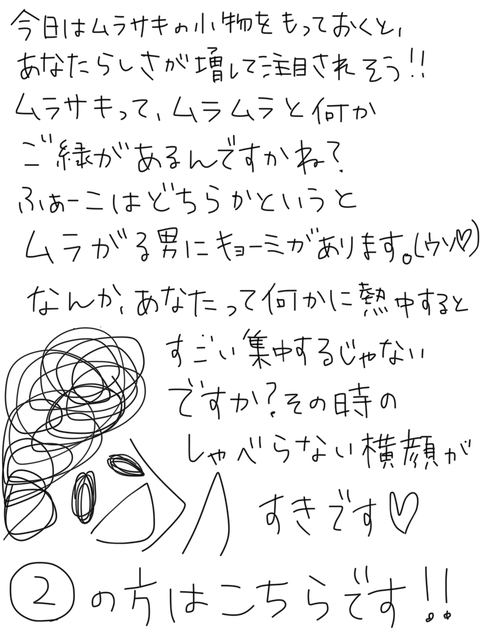 今日はムラサキの小物をもっておくと、
あなたらしさが増して注目されそう!!
ムラサキって、ムラムラと何か
ご縁があるんですかね?
ふぁーこはどちらかというと
ムラがる男にキョーミがあります。(ウソ♡)
なんか、あなたって何かに熱中すると
すごい集中するじゃない
ですか?その時の
しゃべらない横顔が
すきです♡
②の方はこちらです!!